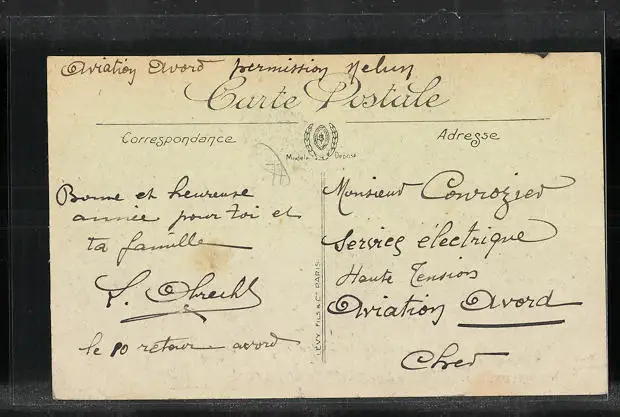 Aviation Avord permission Melun
Carte Postale
Correspondance
Adresse
Modèle Déposé
Bonne et heureuse
année pour toi et
ta famille
L. Obrecht
le 10 retour avord
LÉVY FILS & Cie PARIS
Monsieur Conrozier
Services électrique
Haute Tension
Aviation Avord
Cher